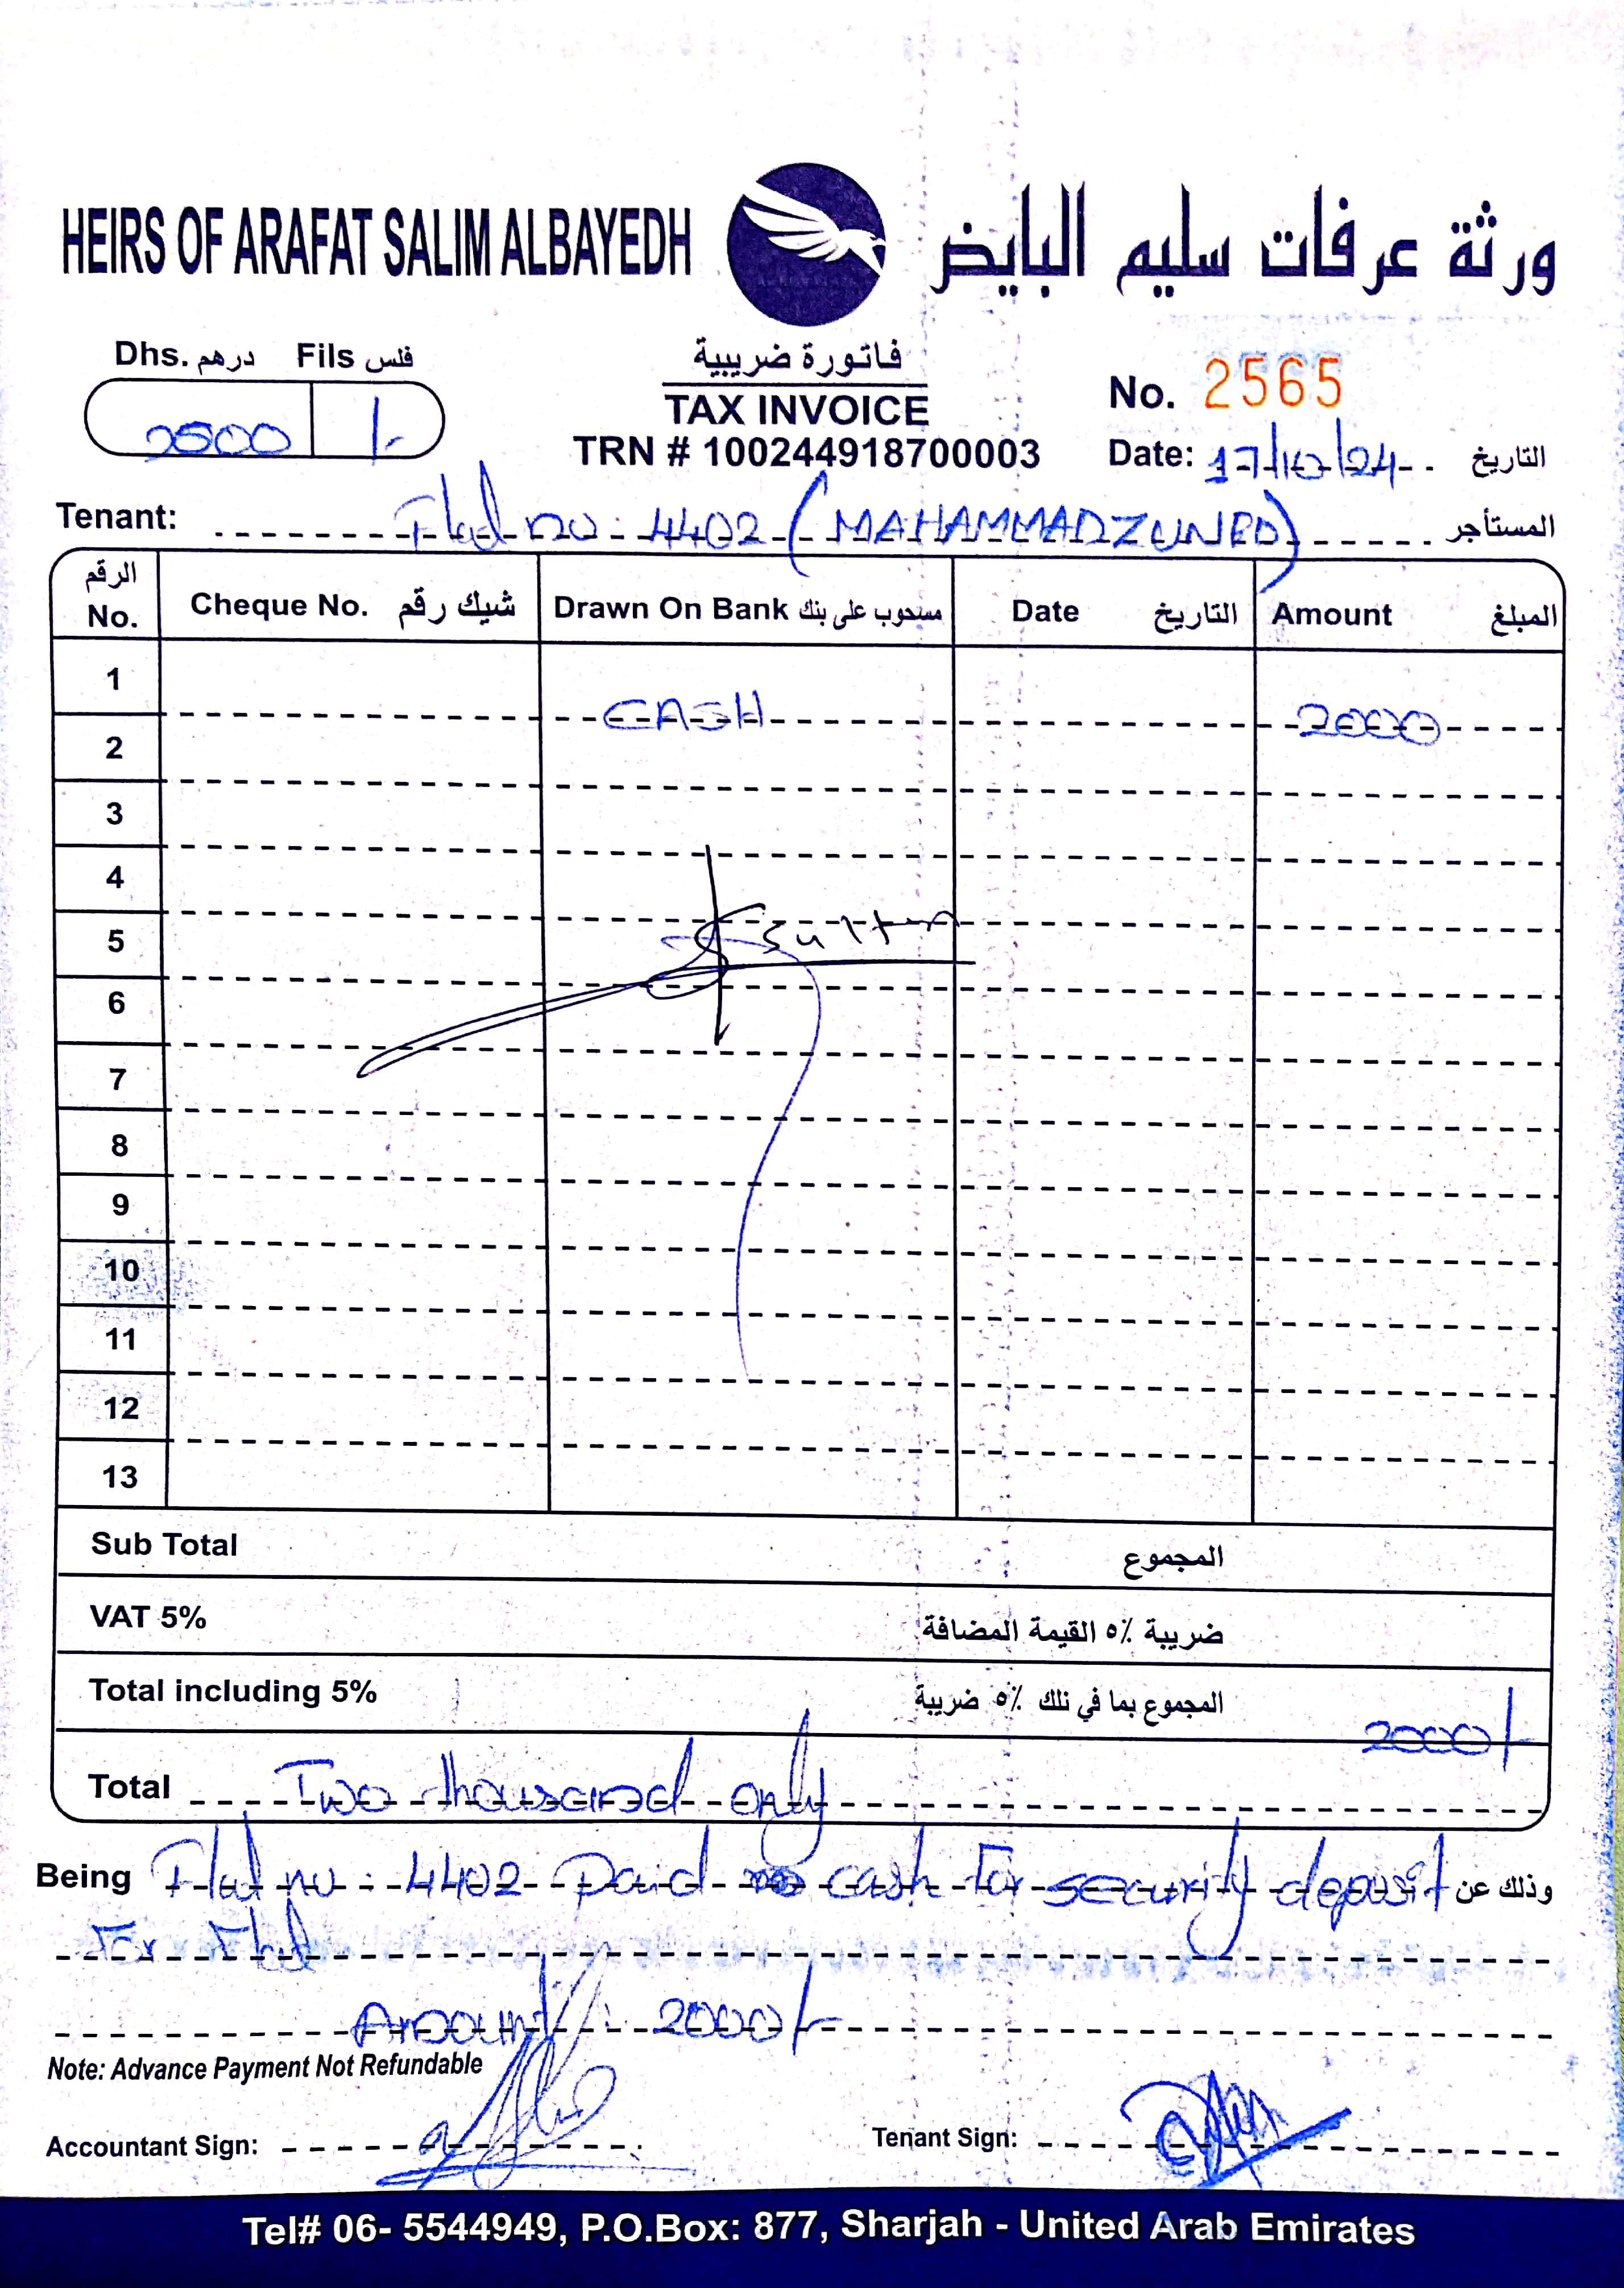 HEIRS OF ARAFAT SALIM ALBAYEDH ورثة عرفات سليم البايض
Dhs. درهم Fils فلس
2500 /-
فاتورة ضريبية
TAX INVOICE
TRN # 100244918700003
No. 2565
Date: 17/10/24 التاريخ
Tenant: Flat no: 4402 (MAHAMMADZUNED) المستأجر
الرقم No. Cheque No. شيك رقم Drawn On Bank مسحوب على بنك Date التاريخ Amount المبلغ
1
CASH 2000
2
3
4
5 Sultan
6
7
8
9
10
11
12
13
Sub Total المجموع
VAT 5% ضريبة ٥٪ القيمة المضافة
Total including 5% المجموع بما في ذلك ٥٪ ضريبة 2000/-
Total Two thousand only
Being Flat no: 4402 Paid cash For security deposit وذلك عن
For Flat
Amount: 2000/-
Note: Advance Payment Not Refundable
Accountant Sign: Tenant Sign:
Tel# 06- 5544949, P.O.Box: 877, Sharjah - United Arab Emirates